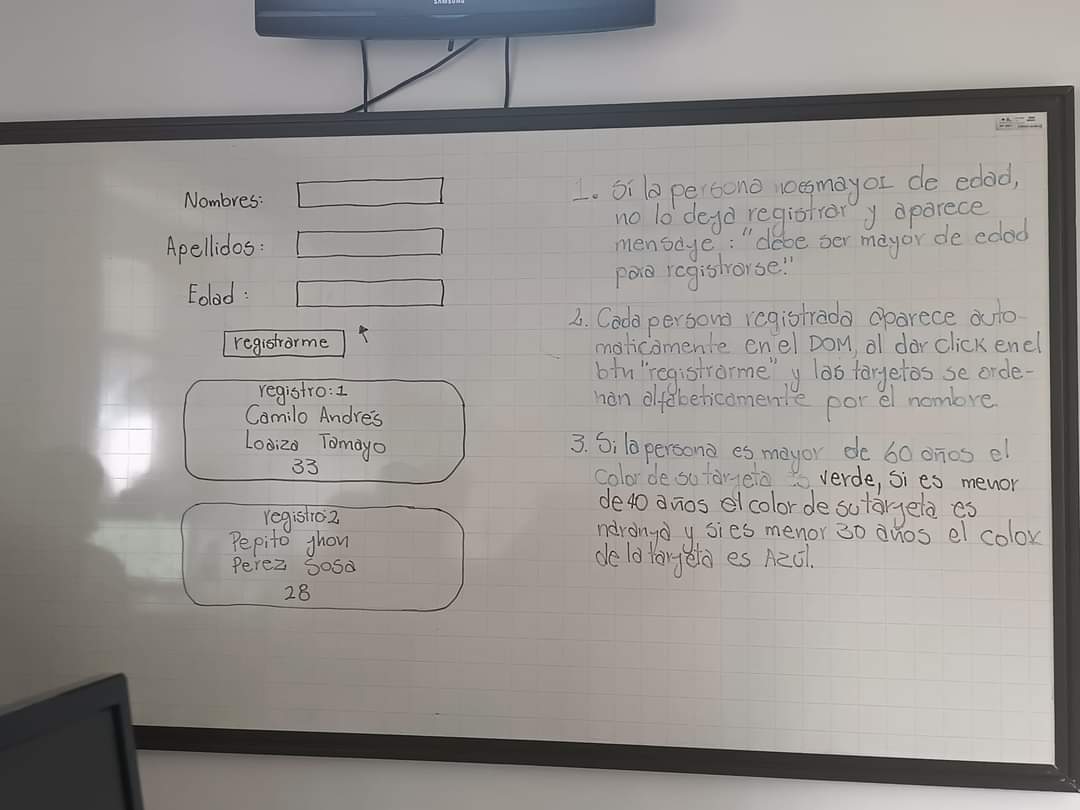 SAMSUNG
Nombres:
Apellidos:
Edad:
registrarme
registro:1
Camilo Andrés
Loaiza Tamayo
33
registro:2
Pepito jhon
Perez Sosa
28
1. Si la persona no es mayor de edad,
no lo deja registrar y aparece
mensaje: "debe ser mayor de edad
para registrarse."
2. Cada persona registrada aparece auto-
maticamente en el DOM, al dar click en el
btn "registrarme" y las tarjetas se orde-
nan alfabeticamente por el nombre
3. Si la persona es mayor de 60 años el
Color de su tarjeta es verde, si es menor
de 40 años el color de su tarjeta es
naranja y si es menor 30 años el color
de la tarjeta es Azúl.